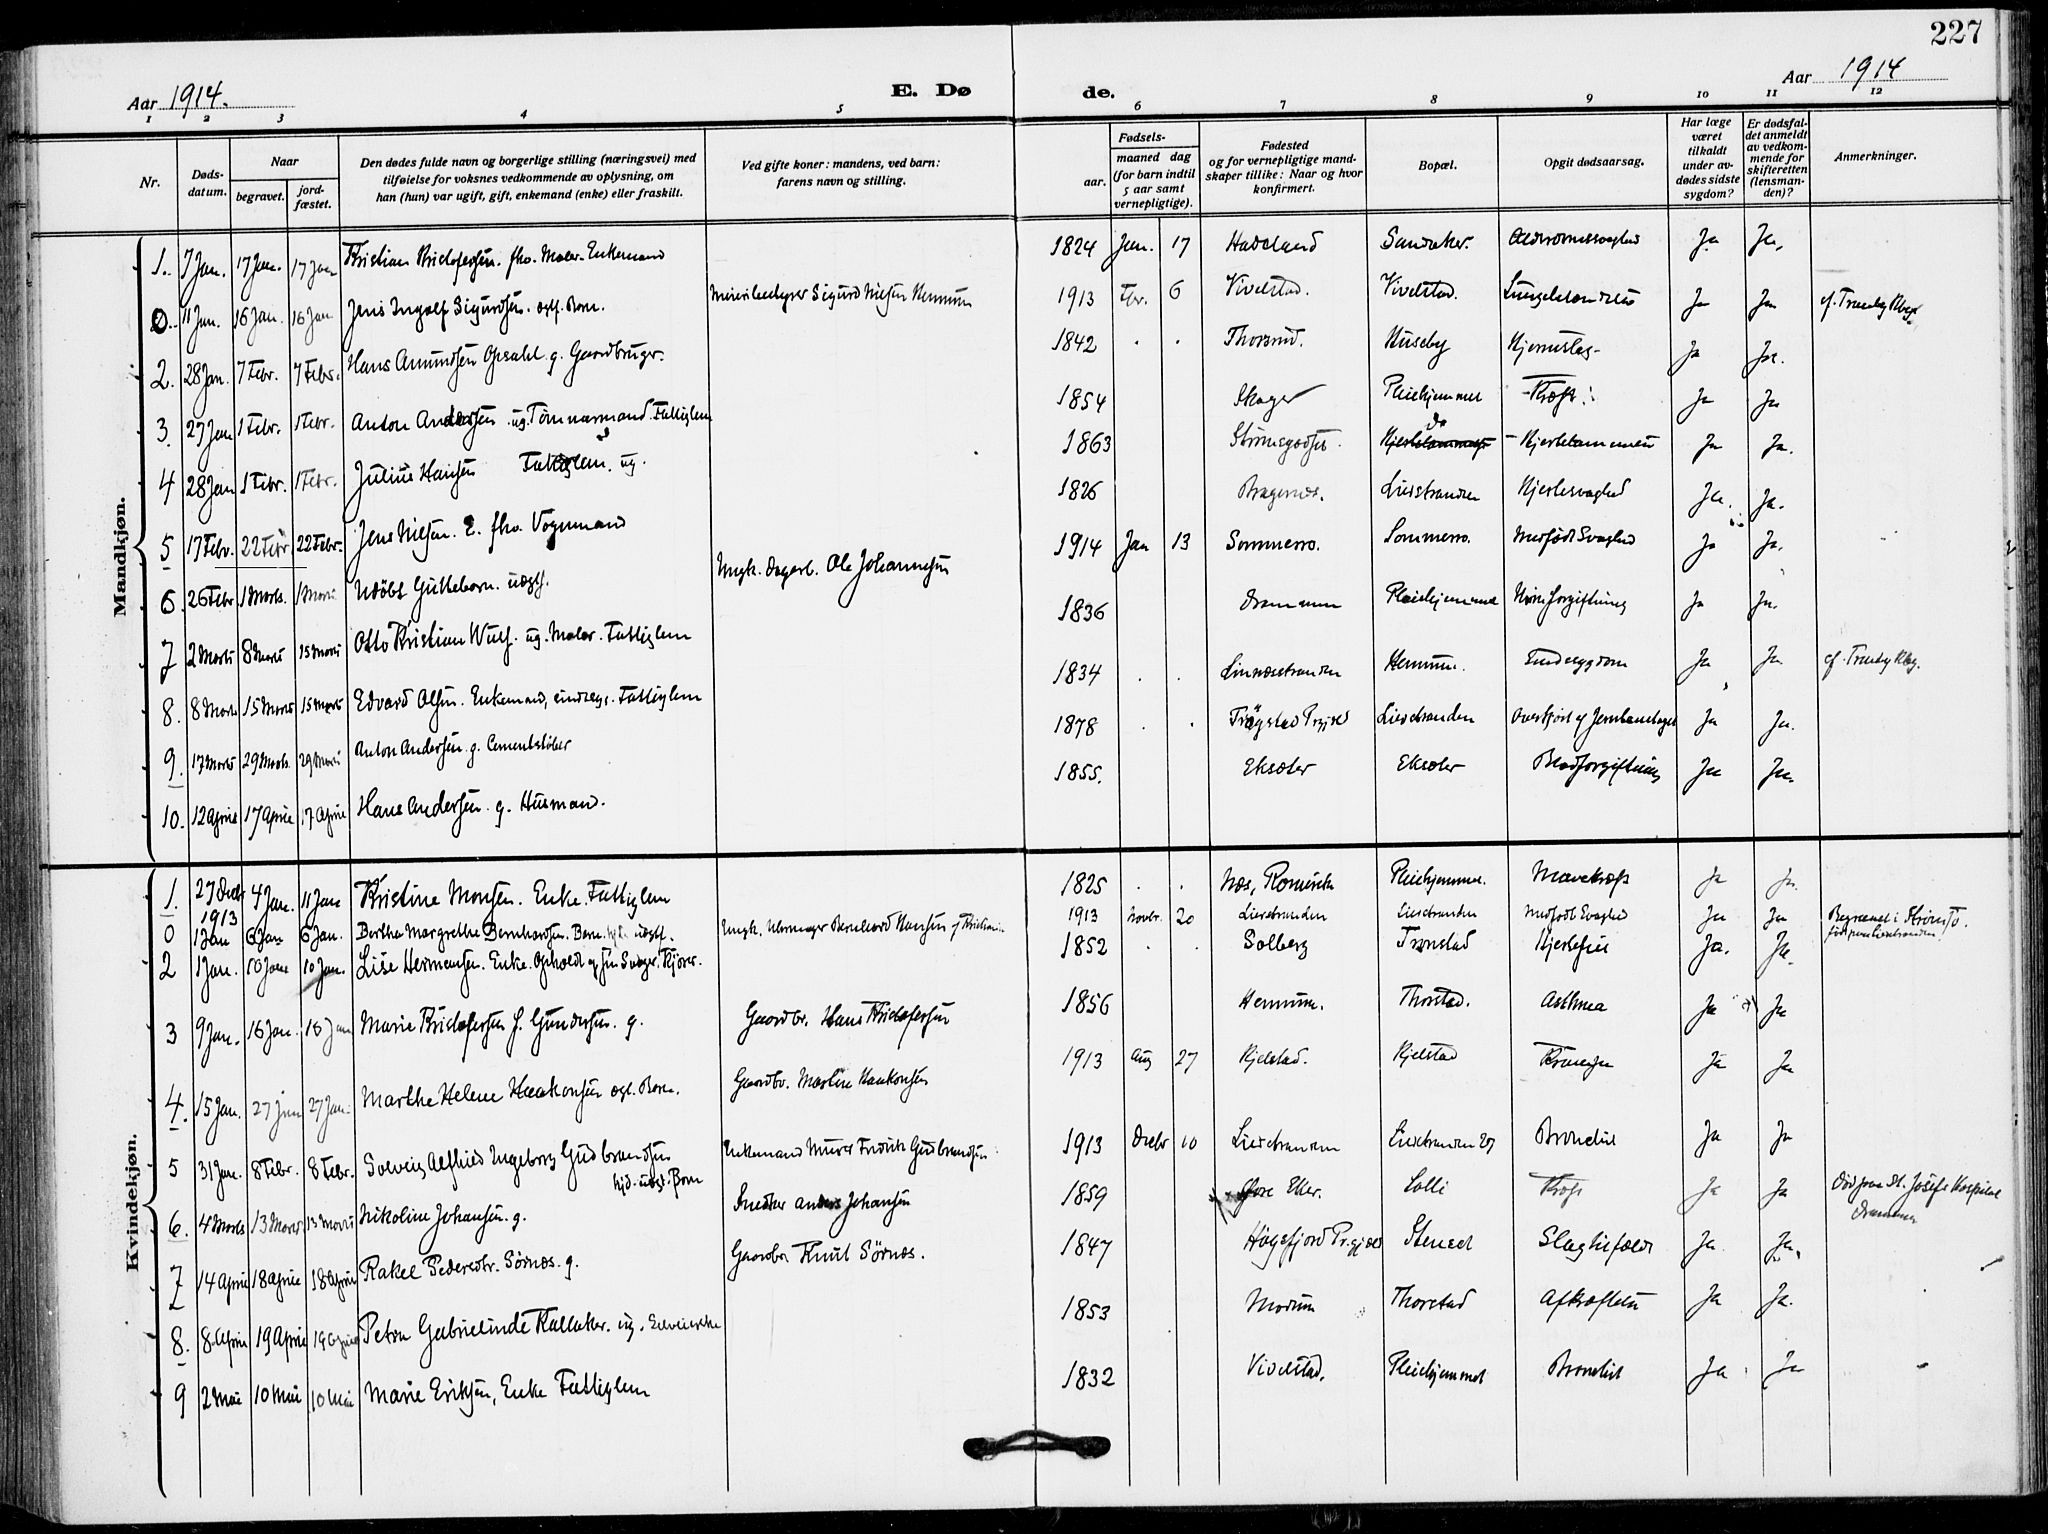 227
Aar 1914. E. Dø de. Aar 1914
1 2 3 4 5 6 7 8 9 10 11 12
Nr.
Døds-
datum.
Naar
begravet.
jord-
fæstet.
Den dødes fulde navn og borgerlige stilling (næringsvei) med
tilføielse for voksnes vedkommende av oplysning, om
han (hun) var ugift, gift, enkemand (enke) eller fraskilt.
Ved gifte koner: mandens, ved barn:
farens navn og stilling.
Fødsels-
aar.
maaned dag
(for barn indtil
5 aar samt
vernepligtige).
Fødested
og for vernepligtige mand-
skaper tillike: Naar og hvor
konfirmert.
Bopæl.
Opgit dødsaarsag.
Har læge
været
tilkaldt
under av-
dødes sidste
sygdom?
Er dødsfal-
det anmeldt
av vedkom-
mende for
skifteretten
(lensman-
den)?
Anmerkninger.
Mandkjøn.
1. 7 Jan. 17 Jan. 17 Jan Kristian Kristofersen. fhv. Maler. Enkemand 1824 Jan. 17 Hadeland Sandaker. Alderdomssvaghed Ja Ja.
0. 11 Jan. 16 Jan. 16 Jan Jens Ingolf Sigurdsen. egtf. Barn. Meieribestyrer Sigurd Nielsen Hennum 1913 Fbr. 6 Vivelstad. Vivelstad. Ja Ja cf. Tranby Kbg.
2. 28 Jan. 7 Febr. 7 Febr. Hans Amundsen Opsahl g. Gaardbruger. 1842 . . Thorsrud. Huseby Hjerneslag Ja Ja.
3. 27 Jan 1 Febr. 1 Febr. Anton Andersen. ug. Tømmermand. Fattiglem 1854 Skoger Pleiehjemmet Kræft. Ja Ja
4 28 Jan 1 Febr. 1 Febr. Julius Hansen Fattiglem. ug. 1863 Strømsgodset. do Hjertelammelse Ja Ja.
5 17 Febr. 22 Febr. 22 Febr. Jens Nielsen. E. fhv. Vognmand 1826 Bragernes. Lierstranden Hjertesvaghed Ja. Ja.
6. 26 Febr 1 Marts. 1 Marts Udøbt Guttebarn. uegtf. Ungk. Dagarb. Ole Johannesen 1914 Jan 13 Sommerro. Sommerro. Medfødt Svaghed Ja Ja.
7 2 Marts 8 Marts 15 Marts Otto Kristian Wulf. ug. Maler. Fattiglem 1836 Drammen Pleiehjemmet Ja Ja.
8. 8 Marts 15 Marts 15 Marts Edvard Olsen. Enkemand, Fattiglem 1834 . . Linnesstranden Hennum. Ja Ja cf. Tranby Kbg.
9. 17 Marts 29 Marts. 29 Marts Anton Andersen g. Cementstøber 1878 . . Trøgstad Prgjæld Lierstranden Overkjørt af Jernbanetoget Ja Ja.
10. 12 April 17 April 17 April Hans Andersen. g. Husmand. 1855. Eksæter Eksæter Blodforgiftning Ja Ja.
Kvindekjøn.
1. 27 Decbr 1913 4 Jan. 11 Jan Kristine Monsen. Enke. Fattiglem 1825 . . Næs, Romerike Pleiehjemmet. Mavekræft Ja Ja.
0 1 Jan 6 Jan 6 Jan. Berthe Margrethe Bernhardsen. Barn. uegtf. Ungk. Bernhard Hansen 1913 Novbr. 20 Lierstranden Lierstranden Medfødt Svaghed Ja Ja Begravet i Strømsø.
2 1 Jan. 10 Jan 10 Jan. Lise Hermansen. Enke. 1852 . . Solberg Tronstad Hjertefeil Ja. Ja.
3 9 Jan. 16 Jan. 16 Jan Marie Kristofersen f. Gundersen. g. Gaardbr. Hans Kristofersen 1856 Hennum. Thorstad. Asthma Ja Ja
4. 15 Jan. 27 Jan 27 Jan. Marthe Helene Haakonsen egt. Barn. Gaardbr. Martin Haakonsen 1913 Aug 27 Kjelstad. Kjelstad Ja Ja
5 31 Jan. 8 Febr. 8 Febr. Solveig Alfhild Ingeborg Gudbrandsen hjd. uegt. Barn Enkemand Murer Fredrik Gudbrandsen 1913 Decbr 10 Lierstranden Lierstranden Bronchit Ja Ja
6. 4 Marts 13 Marts 13 Marts Nikoline Johansen. g. Snedker Anders Johansen 1859 Øvre Eker. Lolli Kræft Ja Ja Død paa St. Josefs Hospital Drammen
7 14 April 18 April 18 April Rakel Pedersdtr. Sørnes. g. Gaardbr Knut Sørnes. 1847 Høgsfjord Prgjæld Stenset Slagtilfælde Ja Ja.
8. 8 April 19 April 19 April Petra Gabrielinde Kallaker. ug. 1853 Modum Thorstad Afkræftelse Ja Ja.
9 2 Mai 10 Mai 10 Mai Marie Eriksen, Enke Fattiglem 1832 Vivelstad. Pleiehjemmet Bronchit Ja Ja